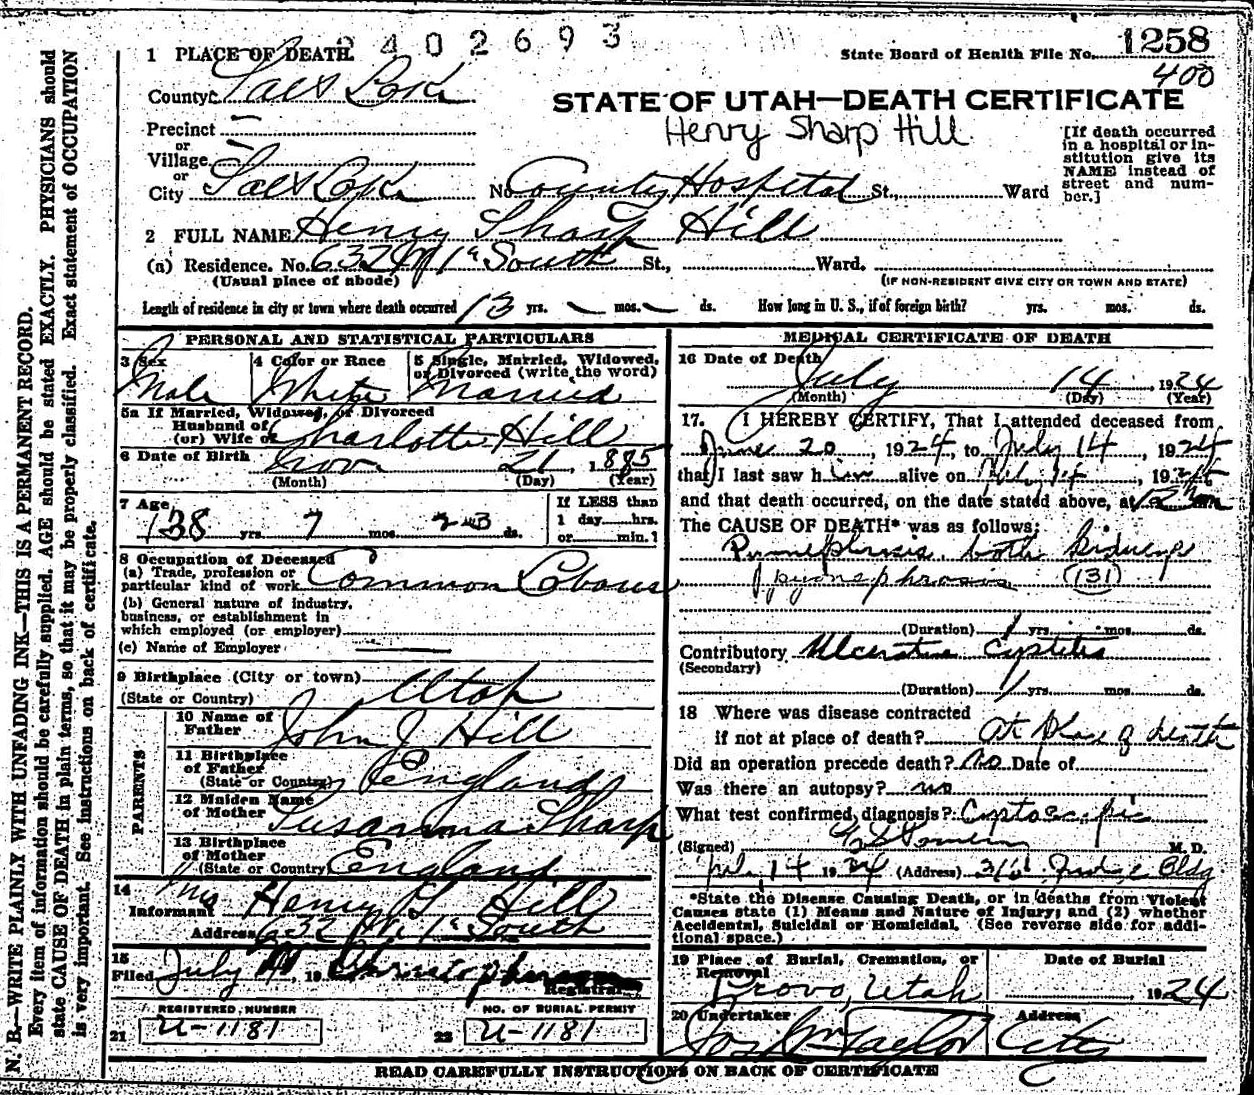 2402693
1 PLACE OF DEATH
State Board of Health File No. 1258
400
County Salt Lake
STATE OF UTAH—DEATH CERTIFICATE
Henry Sharp Hill
Precinct —
or
Village —
or
City Salt Lake No County Hospital St., Ward
[If death occurred
in a hospital or in-
stitution give its
NAME instead of
street and num-
ber.]
2 FULL NAME Henry Sharp Hill
(a) Residence. No. 632 W 1st South St., Ward.
(Usual place of abode) (IF NON-RESIDENT GIVE CITY OR TOWN AND STATE)
Length of residence in city or town where death occurred 13 yrs. — mos. — ds. How long in U. S., if of foreign birth? yrs. mos. ds.
PERSONAL AND STATISTICAL PARTICULARS
3 Sex Male
4 Color or Race White
5 Single, Married, Widowed, or Divorced (write the word) Married
5a If Married, Widowed, or Divorced
Husband of
(or) Wife of Charlotte Hill
6 Date of Birth Nov 21, 1885
(Month) (Day) (Year)
7 Age 38 yrs. 7 mos. 23 ds.
If LESS than
1 day hrs.
or min.?
8 Occupation of Deceased
(a) Trade, profession or
particular kind of work Common Labour
(b) General nature of industry,
business, or establishment in
which employed (or employer)
(c) Name of Employer
9 Birthplace (City or town)
(State or Country) Utah
PARENTS
10 Name of
Father John J Hill
11 Birthplace
of Father
(State or Country) England
12 Maiden Name
of Mother Susanna Sharp
13 Birthplace
of Mother
(State or Country) England
14
Informant Mrs Henry S Hill
Address 632 W. 1st South
15
Filed July 19
Registrar
REGISTERED NUMBER
21 U-1181
NO. OF BURIAL PERMIT
22 U-1181
MEDICAL CERTIFICATE OF DEATH
16 Date of Death
July 14, 1924
(Month) (Day) (Year)
17. I HEREBY CERTIFY, That I attended deceased from
June 20, 1924, to July 14, 1924
that I last saw him alive on July 14, 1924
and that death occurred, on the date stated above, at m
The CAUSE OF DEATH* was as follows:
Pyonephrosis both kidneys
pyonephrosis (131)
(Duration) 1 yrs. mos. ds.
Contributory Ulcerative Cystitis
(Secondary)
(Duration) 1 yrs. mos. ds.
18 Where was disease contracted
if not at place of death? At place of death
Did an operation precede death? No Date of
Was there an autopsy? no
What test confirmed diagnosis? Cystoscopic
(Signed) M. D.
July 14 1924 (Address) Judge Bldg
*State the Disease Causing Death, or in deaths from Violent
Causes state (1) Means and Nature of Injury; and (2) whether
Accidental, Suicidal or Homicidal. (See reverse side for addi-
tional space.)
19 Place of Burial, Cremation, or
Removal
Provo, Utah
Date of Burial
1924
20 Undertaker
Jos. Wm Taylor
Address
City
READ CAREFULLY INSTRUCTIONS ON BACK OF CERTIFICATE
N. B.—WRITE PLAINLY WITH UNFADING INK—THIS IS A PERMANENT RECORD.
Every item of information should be carefully supplied. AGE should be stated EXACTLY. PHYSICIANS should
state CAUSE OF DEATH in plain terms, so that it may be properly classified. Exact statement of OCCUPATION
is very important. See instructions on back of certificate.